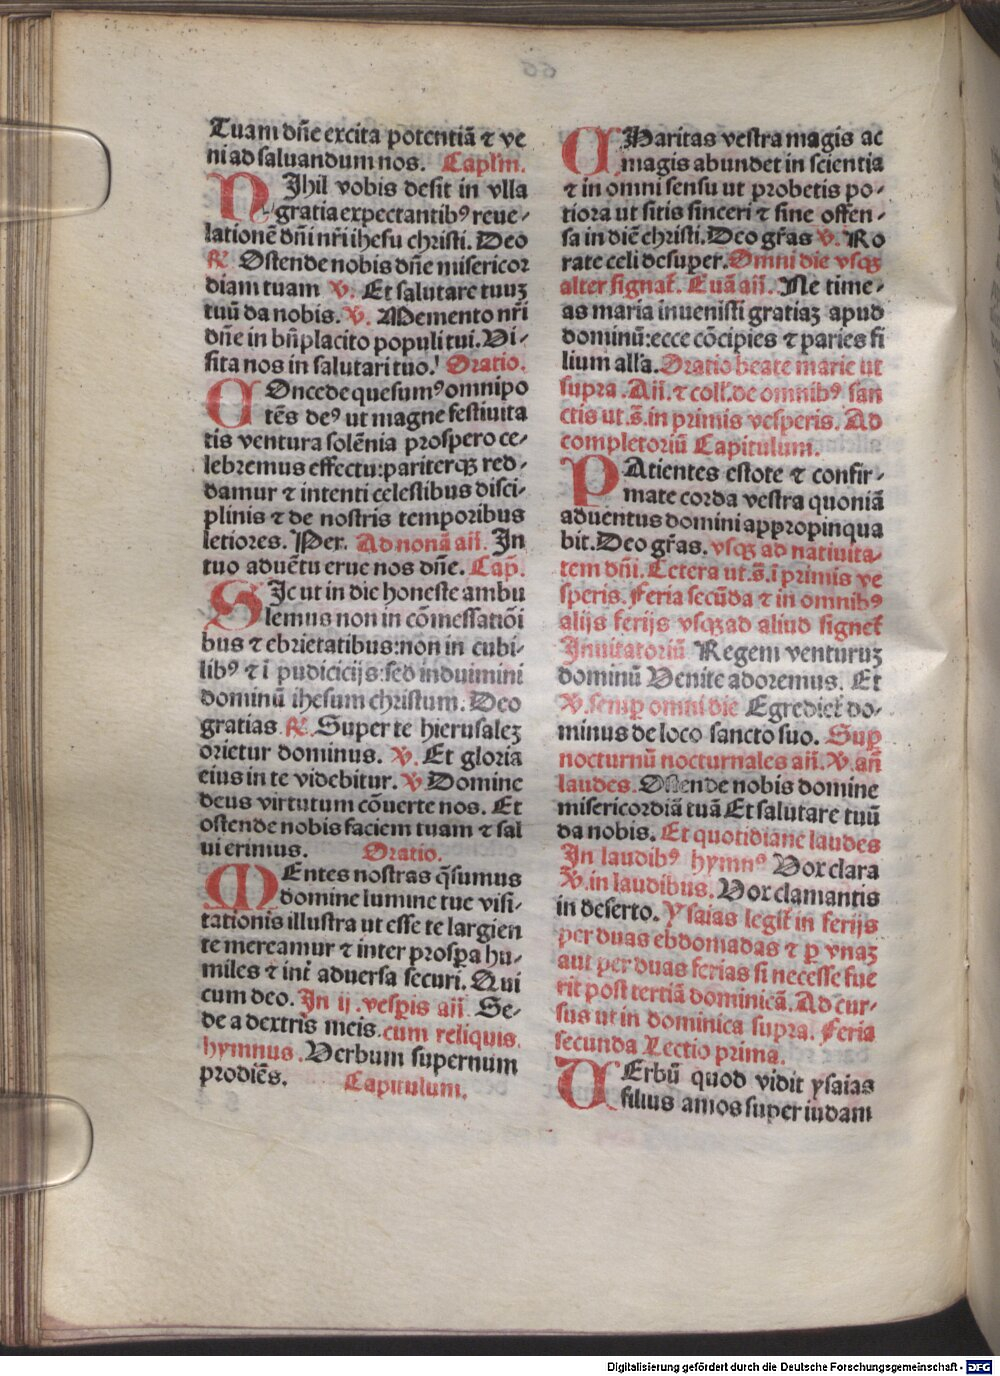 Tuam dñe excita potentiã ⁊ ve
ni ad saluandum nos. Capl'm.
NJhil vobis desit in vlla
gratia expectantibꝰ reue-
lationē dñi nr̃i ihesu christi. Deo
R̷. Ostende nobis dñe misericor
diam tuam V̷. Et salutare tuuꝫ
tuũ da nobis. V̷. Memento nr̃i
dñe in bñplacito populi tui. Vi-
sita nos in salutari tuo. Oratio.
COncede quesumꝰ omnipo
tēs deꝰ ut magne festiuita
tis ventura solēnia prospero ce-
lebremus effectu: pariterqꝫ red-
damur ⁊ intenti celestibus disci-
plinis ⁊ de nostris temporibus
letiores. Per. Ad nonã añ. In
tuo aduētu erue nos dñe. Cap̃.
SJc ut in die honeste ambu
lemus non in cõmessatiõi
bus ⁊ ebrietatibus: non in cubi-
libꝰ ⁊ ĩ pudicicijs: sed induimini
dominũ ihesum christum. Deo
gratias R̷. Super te hierusaleꝫ
orietur dominus. V̷. Et gloria
eius in te videbitur. V̷ Domine
deus virtutum cõuerte nos. Et
ostende nobis faciem tuam ⁊ sal
ui erimus. Oratio.
MEntes nostras q̃sumus
domine lumine tue visi-
tationis illustra ut esse te largien
te mereamur ⁊ inter prosp̃a hu-
miles ⁊ int̃ aduersa securi. Qui
cum deo. In ij. vesp̃is añ. Se-
de a dextris meis. cum reliquis.
hymnus. Verbum supernum
prodiēs. Capitulum.
CHaritas vestra magis ac
magis abundet in scientia
⁊ in omni sensu ut probetis po-
tiora ut sitis sinceri ⁊ sine offen-
sa in diē christi. Deo gr̃as V̷. Ro
rate celi desuper. Omni die vsqꝫ
alter signat̃. Euã añ. Ne time-
as maria inuenisti gratiaꝫ apud
dominũ: ecce cõcipies ⁊ paries fi
lium all'a. Oratio beate marie ut
supra. Añ. ⁊ coll. de omnibꝰ san
ctis ut s̃. in primis vesperis. Ad
completoriũ Capitulum.
PAtientes estote ⁊ confir-
mate corda vestra quoniã
aduentus domini appropinqua
bit. Deo gr̃as. vsqꝫ ad natiuita-
tem dñi. Cetera ut s̃. ĩ primis ve
speris. Feria secũda ⁊ in omnibꝰ
alijs ferijs vsqꝫ ad aliud signet̃
Inuitatoriũ Regem venturuꝫ
dominũ Venite adoremus. Et
V̷. semp̃ omni die Egrediet̃ do-
minus de loco sancto suo. Sup̃
nocturnũ nocturnales añ. V̷. añ
laudes. Ostende nobis domine
misericordiã tuã Et salutare tuũ
da nobis. Et quotidiane laudes
In laudibꝰ hymnꝰ Vox clara
V̷. in laudibus. Vox clamantis
in deserto. Ysaias legit̃ in ferijs
per duas ebdomadas ⁊ p̲ vnaꝫ
aut per duas ferias si necesse fue
rit post tertiã dominicã. Ad cur-
sus ut in dominica supra. Feria
secunda Lectio prima.
VErbũ quod vidit ysaias
filius amos super iudam
Digitalisierung gefördert durch die Deutsche Forschungsgemeinschaft - DFG